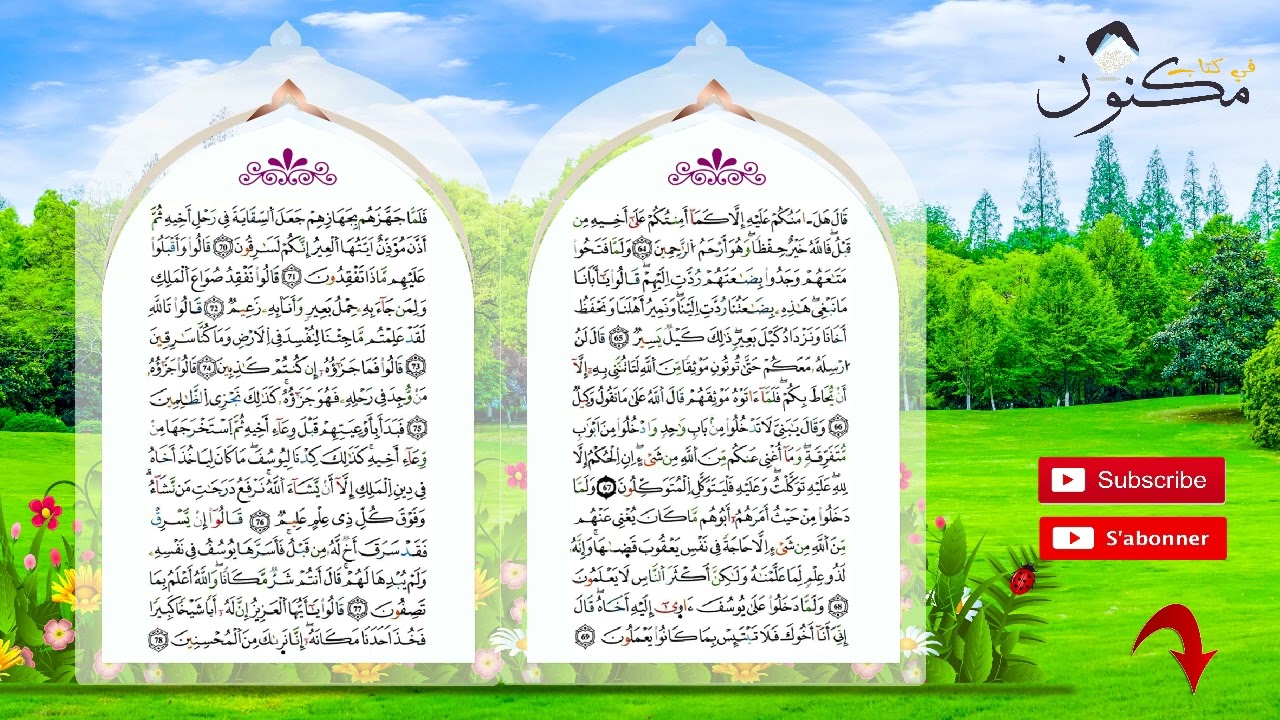 في كتاب
مكنون
قَالَ هَلَ ـ امَنُكُمْ عَلَيْهِ إِلَّا كَمَآ أَمِنتُكُمْ عَلَىٰٓ أَخِيهِ مِن
قَبْلُ فَاللَّهُ خَيْرٌ حِفْظًا وَهُوَ أَرْحَمُ الرَّٰحِمِينَ 64 وَلَمَّا فَتَحُوا
مَتَٰعَهُمْ وَجَدُوا بِضَٰعَتَهُمْ رُدَّتِ إِلَيْهِمْ قَالُوا يَٰٓأَبَانَا
مَا نَبْغِي هَٰذِهِۦ بِضَٰعَتُنَا رُدَّتِ اِلَيْنَا وَنَمِيرُ أَهْلَنَا وَنَحْفَظُ
أَخَانَا وَنَزْدَادُ كَيْلَ بَعِيرٍ ذَٰلِكَ كَيْلٌ يَسِيرٌ 65 قَالَ لَنُ
ارْسِلَهُۥ مَعَكُمْ حَتَّىٰ تُوتُونِ مَوْثِقًا مِّنَ اَللَّهِ لَتَاتُنَّنِي بِهِۦٓ إِلَّآ
أَنْ يُّحَاطَ بِكُمْ فَلَمَّآ ءَاتَوْهُ مَوْثِقَهُمْ قَالَ اَللَّهُ عَلَىٰ مَا نَقُولُ وَكِيلٌ
66 وَقَالَ يَٰبَنِيَّ لَا تَدْخُلُوا مِنۢ بَابٍ وَٰحِدٍ وَادْخُلُوا مِنَ اَبْوَٰبٍ
مُّتَفَرِّقَةٍ وَمَآ أُغْنِي عَنكُم مِّنَ اَللَّهِ مِن شَيْءٍ اِنِ الْحُكْمُ إِلَّا
لِلهِ عَلَيْهِ تَوَكَّلْتُ وَعَلَيْهِ فَلْيَتَوَكَّلِ الْمُتَوَكِّلُونَ 67 وَلَمَّا
دَخَلُوا مِنْ حَيْثُ أَمَرَهُمُۥٓ أَبُوهُم مَّا كَانَ يُغْنِي عَنْهُم
مِّنَ اَللَّهِ مِن شَيْءٍ اِلَّا حَاجَةً فِي نَفْسِ يَعْقُوبَ قَضَىٰهَا وَإِنَّهُۥ
لَذُو عِلْمٍ لِّمَا عَلَّمْنَٰهُ وَلَٰكِنَّ أَكْثَرَ اَلنَّاسِ لَا يَعْلَمُونَ
68 وَلَمَّا دَخَلُوا عَلَىٰ يُوسُفَ ءَاوِىٰٓ إِلَيْهِ أَخَاهُ قَالَ
إِنِّيَ أَنَآ أَخُوكَ فَلَا تَبْتَئِسْ بِمَا كَانُوا يَعْمَلُونَ 69
فَلَمَّا جَهَّزَهُم بِجَهَازِهِمْ جَعَلَ اَلسِّقَايَةَ فِي رَحْلِ أَخِيهِ ثُمَّ
أَذَّنَ مُؤَذِّنٌ اَيَّتُهَا اَلْعِيرُ إِنَّكُمْ لَسَٰرِقُونَ 70 قَالُوا وَأَقْبَلُوا
عَلَيْهِم مَّاذَا تَفْقِدُونَ 71 قَالُوا نَفْقِدُ صُوَاعَ اَلْمَلِكِ
وَلِمَن جَآءَ بِهِۦ حِمْلُ بَعِيرٍ وَأَنَا بِهِۦ زَعِيمٌ 72 قَالُوا تَاللَّهِ
لَقَدْ عَلِمْتُم مَّا جِئْنَا لِنُفْسِدَ فِي اِلَارْضِ وَمَا كُنَّا سَٰرِقِينَ
73 قَالُوا فَمَا جَزَٰٓؤُهُۥٓ إِن كُنتُمْ كَٰذِبِينَ 74 قَالُوا جَزَٰٓؤُهُۥ
مَنْ وُّجِدَ فِي رَحْلِهِۦ فَهُوَ جَزَٰٓؤُهُۥ كَذَٰلِكَ نَجْزِي اِلظَّٰلِمِينَ
75 فَبَدَأَ بِأَوْعِيَتِهِمْ قَبْلَ وِعَآءِ اَ۬خِيهِ ثُمَّ اَسْتَخْرَجَهَا مِنْ
وِّعَآءِ اَ۬خِيهِ كَذَٰلِكَ كِدْنَا لِيُوسُفَ مَا كَانَ لِيَاخُذَ أَخَاهُ
فِي دِينِ اِلْمَلِكِ إِلَّآ أَنْ يَّشَآءَ اَللَّهُ نَرْفَعُ دَرَجَٰتِ مَن نَّشَآءُ
وَفَوْقَ كُلِّ ذِي عِلْمٍ عَلِيمٌ 76 قَالُوٓا إِنْ يَّسْرِقْ
فَقَدْ سَرَقَ أَخٌ لَّهُۥ مِن قَبْلُ فَأَسَرَّهَا يُوسُفُ فِي نَفْسِهِۦ
وَلَمْ يُبْدِهَا لَهُمْ قَالَ أَنتُمْ شَرٌّ مَّكَانًا وَاللَّهُ أَعْلَمُ بِمَا
تَصِفُونَ 77 قَالُوا يَٰٓأَيُّهَا اَلْعَزِيزُ إِنَّ لَهُۥٓ أَبًا شَيْخًا كَبِيرًا
فَخُذَ اَحَدَنَا مَكَانَهُۥٓ إِنَّا نَرَىٰكَ مِنَ اَلْمُحْسِنِينَ 78
Subscribe
S'abonner